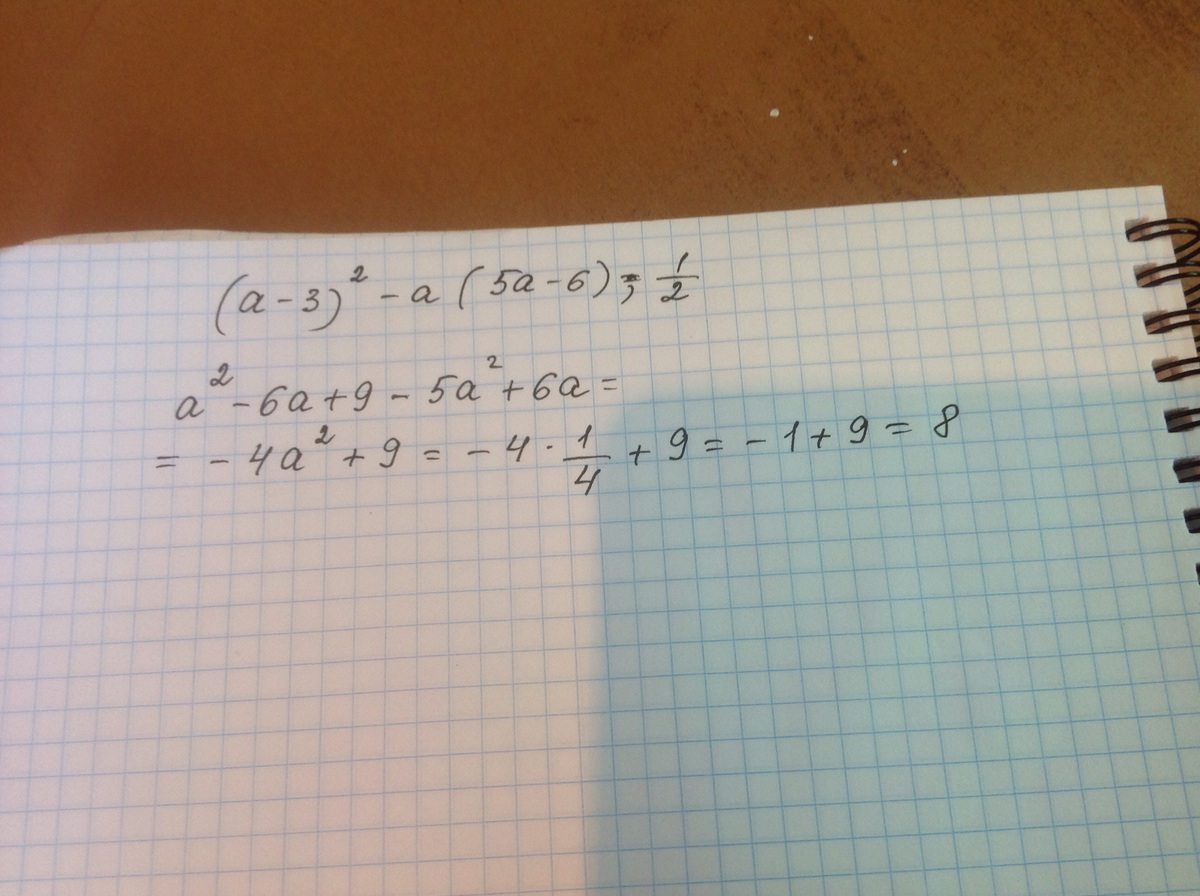 (a-3)² - a (5a-6); 1/2
a² - 6a + 9 - 5a² + 6a =
= - 4a² + 9 = - 4 · 1/4 + 9 = - 1 + 9 = 8